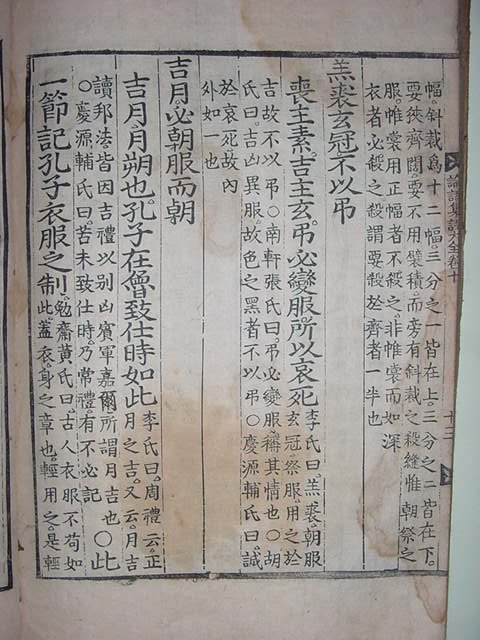 論語集註大全卷十
十三
幅。斜裁爲十二幅。三分之一皆在上。三分之二皆在下。
要狹齊闊。要不用襞積。而旁有斜裁之殺縫。惟朝祭之
服。帷裳用正幅者不殺之。非帷裳而如深
衣者必殺之。殺謂要殺於齊者一半也
羔裘玄冠不以吊
喪主素。吉主玄。吊必變服。所以哀死
李氏曰。羔裘。朝服
玄冠。祭服。用之於
吉故不以吊○南軒張氏曰。吊必變服。稱其情也○胡
氏曰。吉凶異服。故色之黑者不以吊○慶源輔氏曰。誠
於哀死故內
外如一也
吉月。必朝服而朝
吉月。月朔也。孔子在魯致仕時如此
李氏曰。周禮云。正
月之吉。又云。月吉
讀邦法。皆因吉禮以別凶賓軍嘉爾。所謂月吉也
○慶源輔氏曰。苦未致仕時。乃常禮。有不必記
○此
一節記孔子衣服之制
勉齋黃氏曰。古人衣服不苟如
此。蓋衣。身之章也。輕用之。是輕